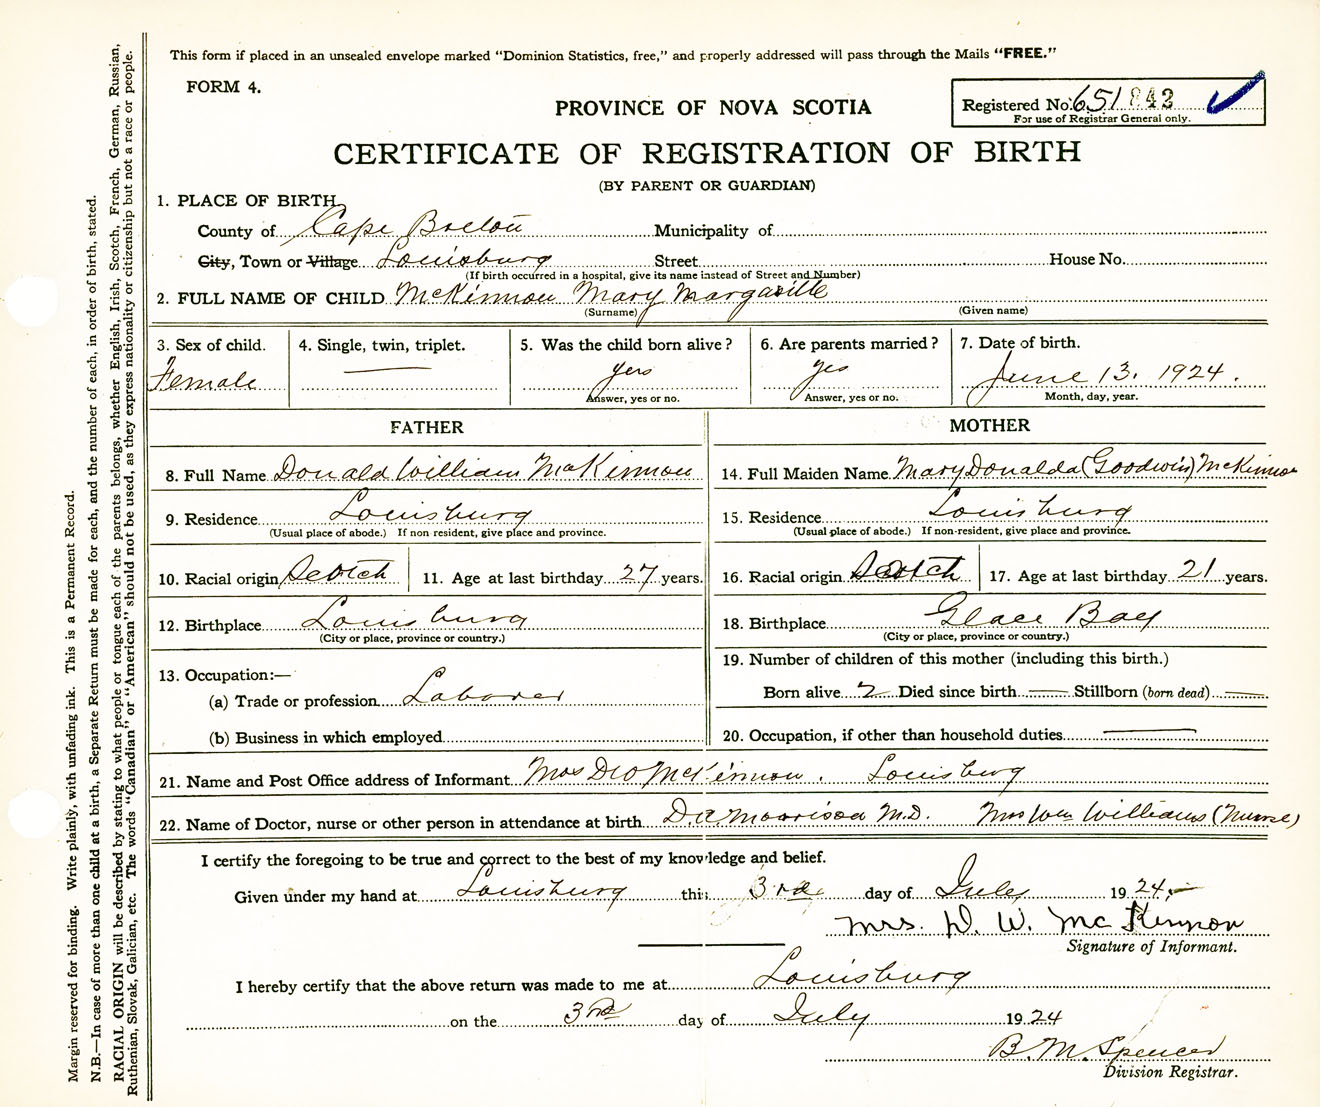 This form if placed in an unsealed envelope marked “Dominion Statistics, free,” and properly addressed will pass through the Mails “FREE.”
FORM 4.
PROVINCE OF NOVA SCOTIA
Registered No. 651842
For use of Registrar General only.
CERTIFICATE OF REGISTRATION OF BIRTH
(BY PARENT OR GUARDIAN)
1. PLACE OF BIRTH
County of Cape Breton Municipality of
City, Town or Village Louisburg Street House No.
(If birth occurred in a hospital, give its name instead of Street and Number)
2. FULL NAME OF CHILD McKinnon Mary Margarette
(Surname) (Given name)
3. Sex of child. 4. Single, twin, triplet. 5. Was the child born alive? 6. Are parents married? 7. Date of birth.
Female — yes yes June 13. 1924.
Answer, yes or no. Answer, yes or no. Month, day, year.
FATHER MOTHER
8. Full Name Donald William McKinnon 14. Full Maiden Name Mary Donalda (Goodwin) McKinnon
9. Residence Louisburg 15. Residence Louisburg
(Usual place of abode.) If non resident, give place and province. (Usual place of abode.) If non-resident, give place and province.
10. Racial origin Scotch 11. Age at last birthday 27 years. 16. Racial origin Scotch 17. Age at last birthday 21 years.
12. Birthplace Louisburg 18. Birthplace Glace Bay
(City or place, province or country.) (City or place, province or country.)
13. Occupation:— 19. Number of children of this mother (including this birth.)
(a) Trade or profession Laborer Born alive 2 Died since birth — Stillborn (born dead) —
(b) Business in which employed 20. Occupation, if other than household duties —
21. Name and Post Office address of Informant Mrs D W McKinnon. Louisburg
22. Name of Doctor, nurse or other person in attendance at birth Morrison M.D. Mrs Wm Williams (Nurse)
I certify the foregoing to be true and correct to the best of my knowledge and belief.
Given under my hand at Louisburg this 3rd day of July 1924,
Mrs. D. W. McKinnon
Signature of Informant.
I hereby certify that the above return was made to me at Louisburg
on the 3rd day of July 1924
B. M. Spencer
Division Registrar.
Margin reserved for binding. Write plainly, with unfading ink. This is a Permanent Record.
N.B.—In case of more than one child at a birth, a Separate Return must be made for each, and the number of each, in order of birth, stated.
RACIAL ORIGIN will be described by stating to what people or tongue each of the parents belongs, whether English, Irish, Scotch, French, German, Russian,
Ruthenian, Slovak, Galician, etc. The words “Canadian” or “American” should not be used, as they express nationality or citizenship but not a race or people.